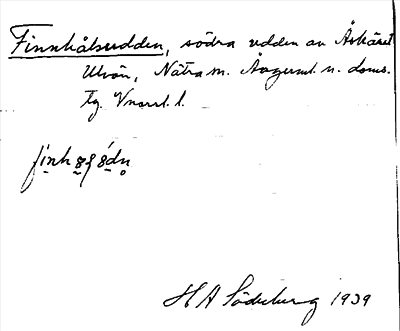 Finnhålsudden, södra udden av Åskäret
Ulvön, Nätra sn. Ångerml. n. doms.
tg. Vnorrl. l.
H A Söderberg 1939